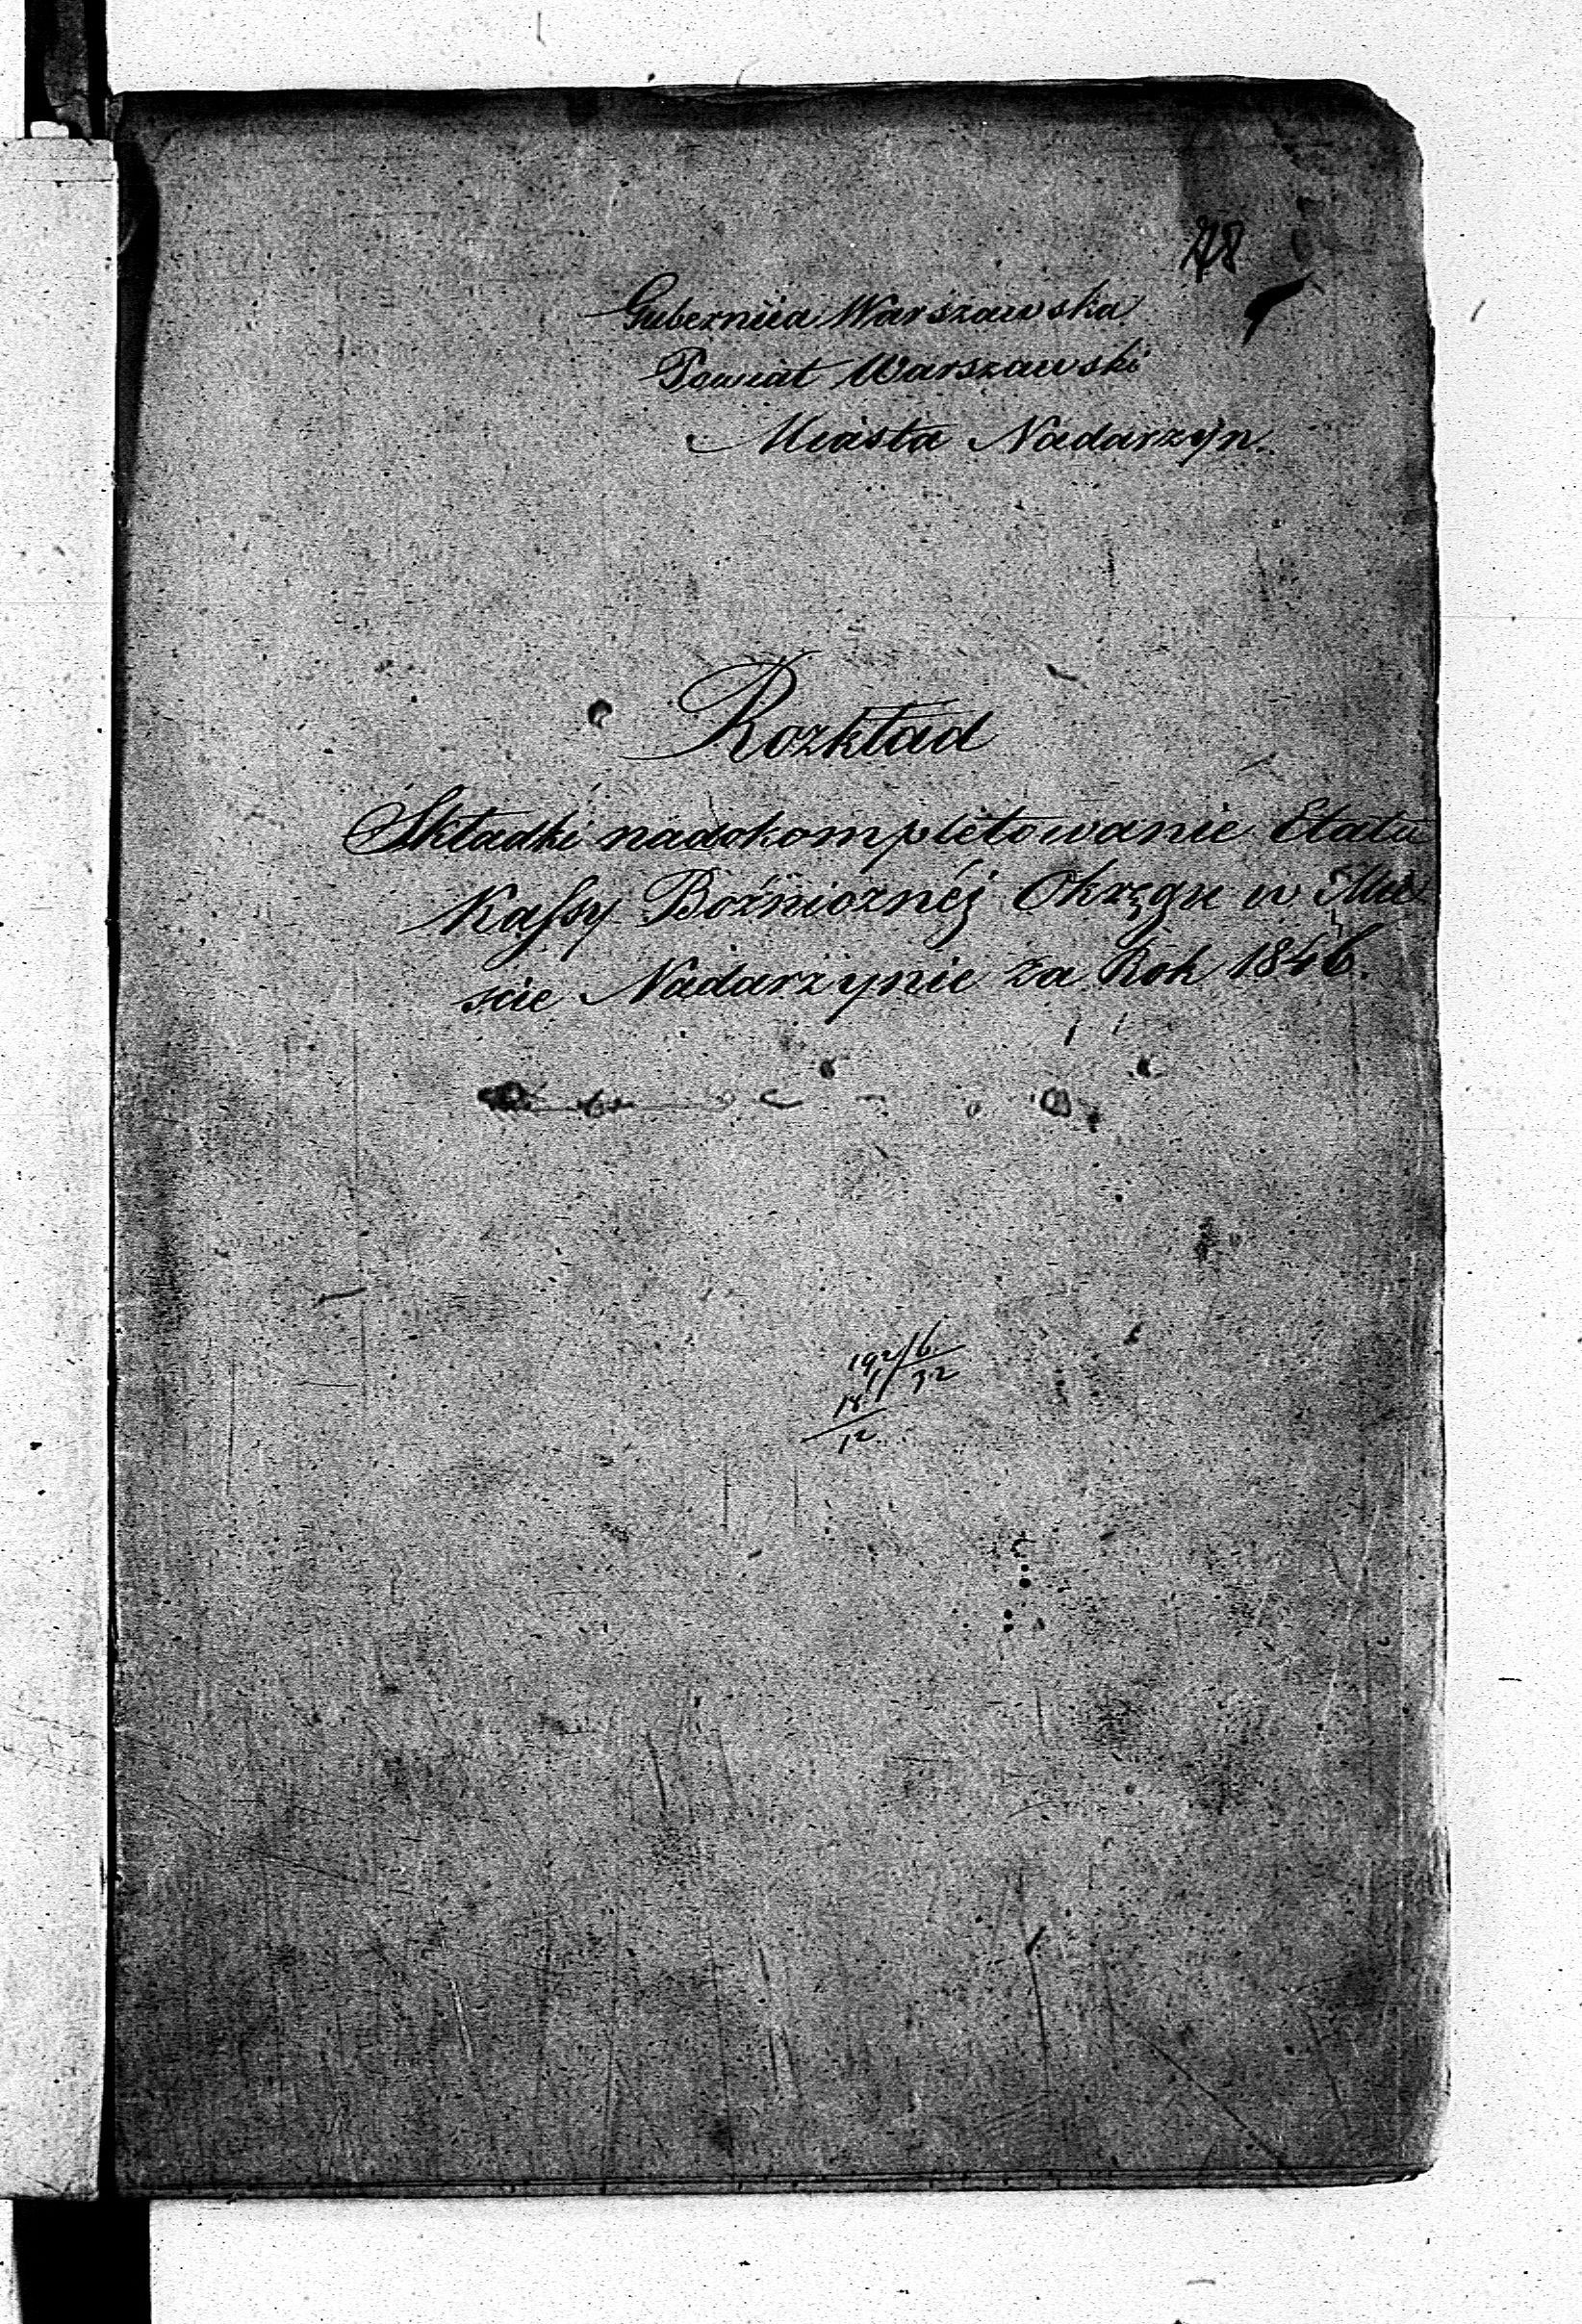 78
Gubernia Warszawska
Powiat Warszawski
Miasta Nadarzyn.
Rozkład
Składki nadokompletowanie Etatu
Kassy Bóżnicznéj Okręgu w Mie
ście Nadarzynie za Rok 1846.
192/6
18 32
12